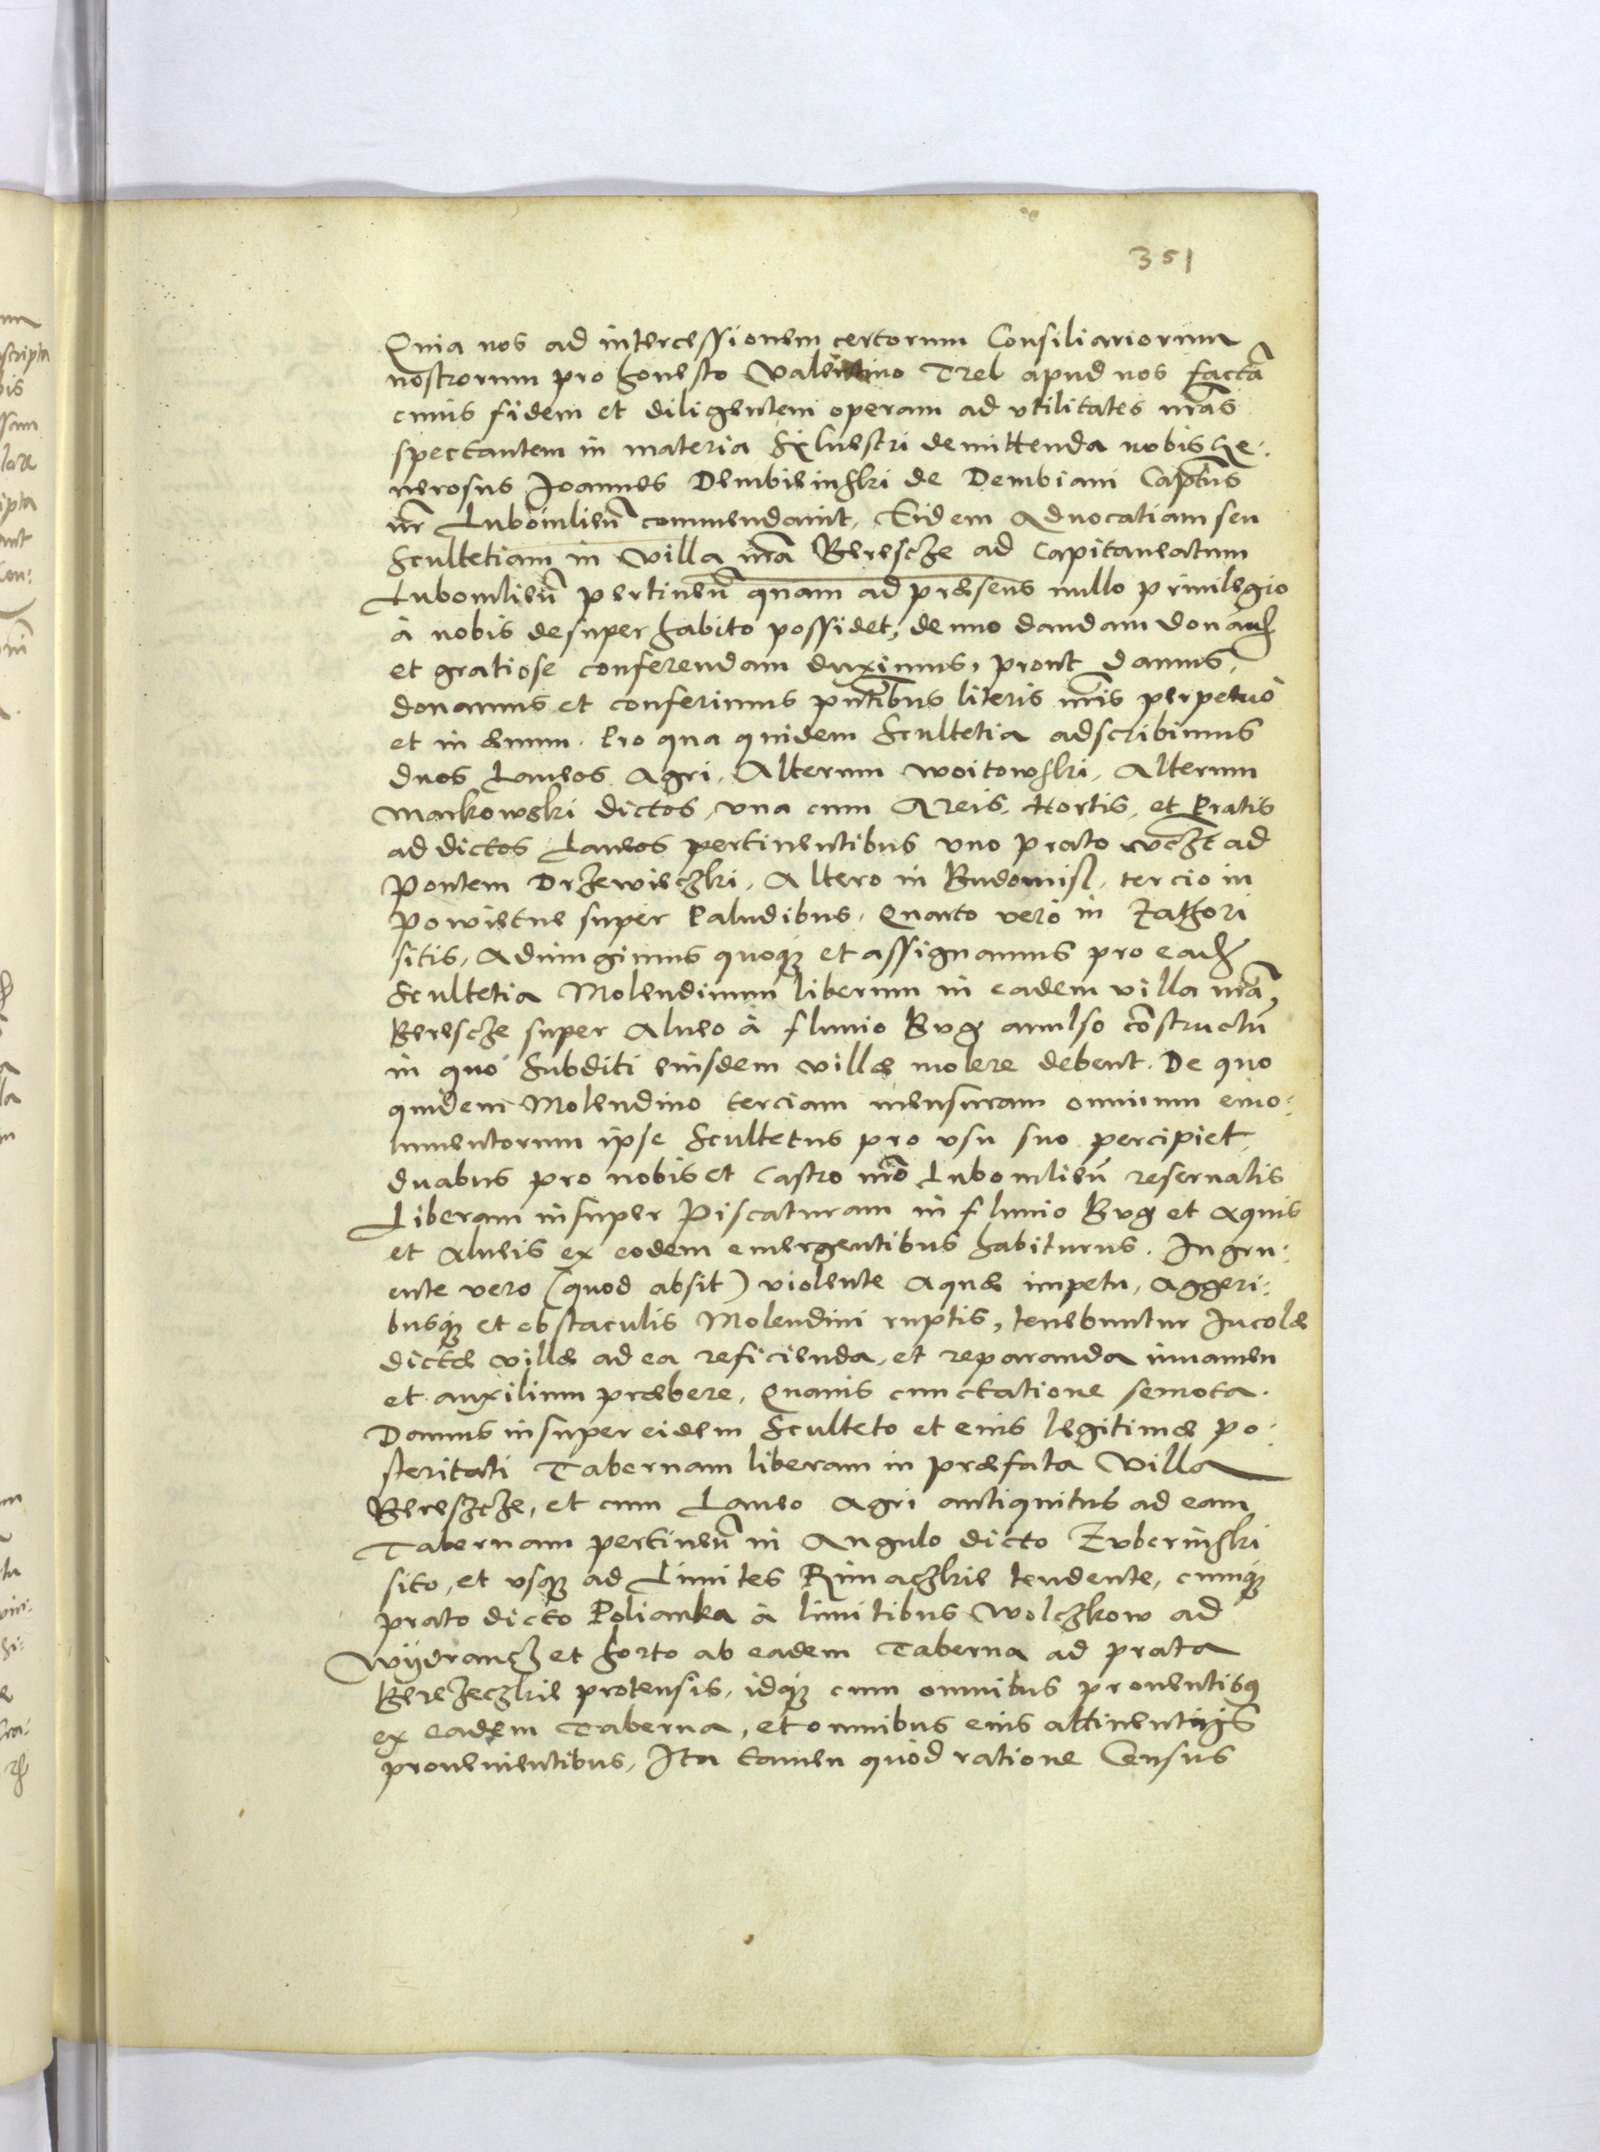 351
Quia nos ad intercessionem certorum Consiliariorum
nostrorum pro honesto Valentino Trel apud nos factã
cuius fidem et diligentem operam ad vtilitates nr̃as
spectantem in materia Sÿluestri demittenda nobis Ge:
nerosus Joannes Dembieinski de Dembiani Captũs
nr̃ Lubomlien̄ commendauit, Eidem Aduocatiam seu
Scultetiam in villa nr̃a Berescze ad Capitaneatum
Lubomlien̄ pertinen̄ quam ad præsens nullo priuilegio
à nobis desuper habito possidet, de nouo dandam donand
et gratiose conferendam duximus, prout damus,
donamus et conferimus pn̄tibus literis nr̃is perpetuò
et in æuum. Pro qua quidem Scultetia adscribimus
duos Laneos Agri, Alterum Woitowski, Alterum
Markowski dictos, vna cum Areis, Hortis, et Pratis
ad dictos Laneos pertinentibus vno prato ad
Pontem Drzewieczki, Altero in Budomisl, tercio in
Powietue super Paludibus, Quarto verò in Zathori
sitis, Adiungimus quoq; et assignamus pro ead
Scultetia Molendinum liberum in eadem villa nr̃a,
Berescze super Alueo à fluuio Bug auulso cõstructũ
in quo Subditi eiusdem villæ molere debent. De quo
quidem Molendino terciam mensuram omnium emo:
lumentorum ipse Scultetus pro vsu suo percipiet,
duabus pro nobis et Castro nr̃o Lubomlien̄ reseruatis
Liberam insuper Piscaturam in fluuio Bug et Aquis
et Alueis ex eodem emergentibus habiturus. Ingru:
ente vero (quod absit) violente Aquæ impetu, Aggeri:
busq; et obstaculis Molendini ruptis, tenebuntur Incolæ
dictæ villæ ad ea reficienda, et reparanda iuuamen
et auxilium præbere, Quauis cunctatione semota.
Damus insuper eidem Sculteto et eius legitimæ po:
steritati Tabernam liberam in præfata Villa
Bereszcze, et cum Laneo Agri antiquitus ad eam
Tabernam pertinen̄ in Angulo dicto Zuberinski
sito, et vsq; ad Limites Rimaczkie tendente, cumq;
prato dicto Polianka à limitibus Wolczkow ad
Wÿdrancz et horto ab eadem Taberna ad prata
Berezeczkie protensis, idq; cum omnibus prouentibq
ex eadem Taberna, et omnibus eius attinentijs
prouenientibus, Ita tamen quod ratione Census